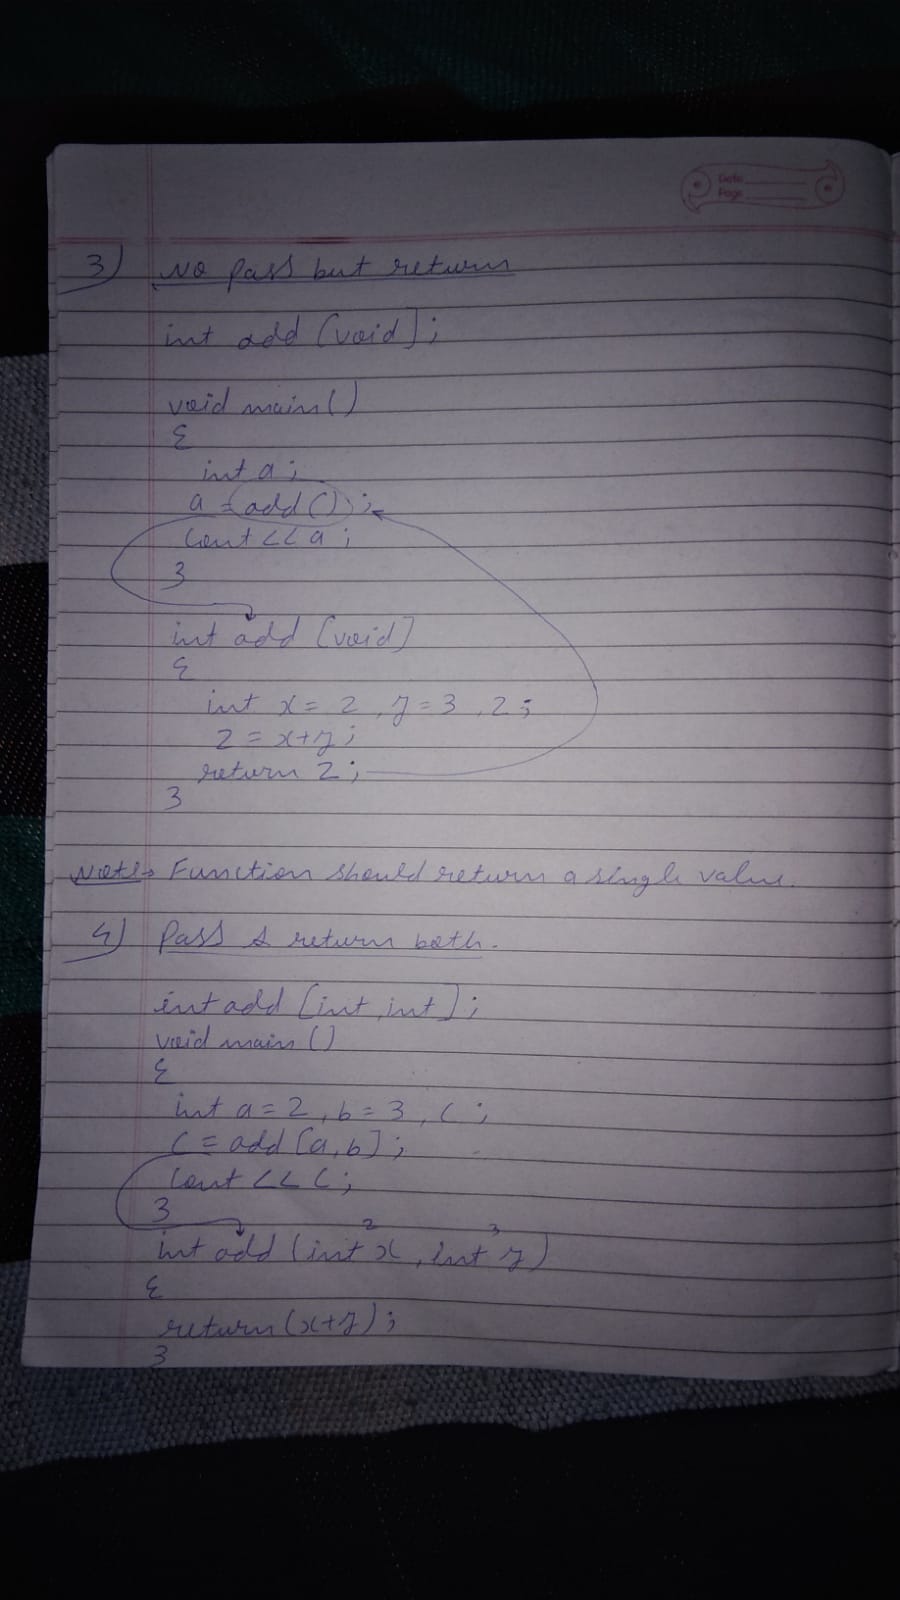 Date
Page
3) No pass but return
int add (void);
void main()
{
int a;
a = add();
cout << a;
}
int add (void)
{
int x = 2, y = 3, z;
z = x+y;
return z;
}
Note→ Function should return a single value.
4) Pass & return both.
int add (int, int);
void main ()
{
int a = 2, b = 3, c;
c = add (a, b);
cout << c;
}
2 3
int add (int x, int y)
{
return (x+y);
}